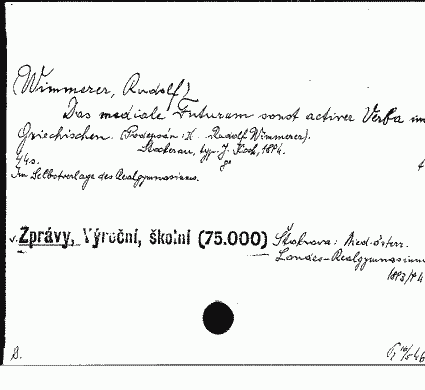 (Wimmerer, Rudolf)
Das mediale Futurum sonst activer Verba im
Griechischen. (Podepsán: K. Rudolf Wimmerer).
Stockerau, typ. J. Koch, 1894.
44 s. 8°
Im Selbstverlage des Realgymnasiums.
v. Zprávy, Výroční, školní (75.000) Štokrava: Nied.-österr.
Landes-Realgymnasium
1893/94
B.